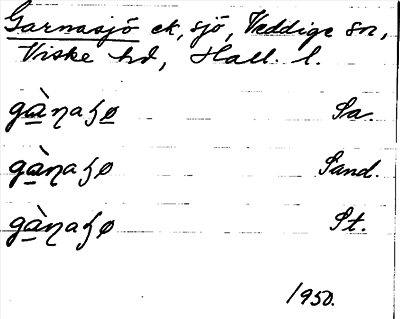 Garnasjö ek, sjö, Veddige sn,
Viske hd, Hall. l.
gàɳaʂø Sa.
gàɳaʂø Sand.
gàɳaʂø St.
1950.